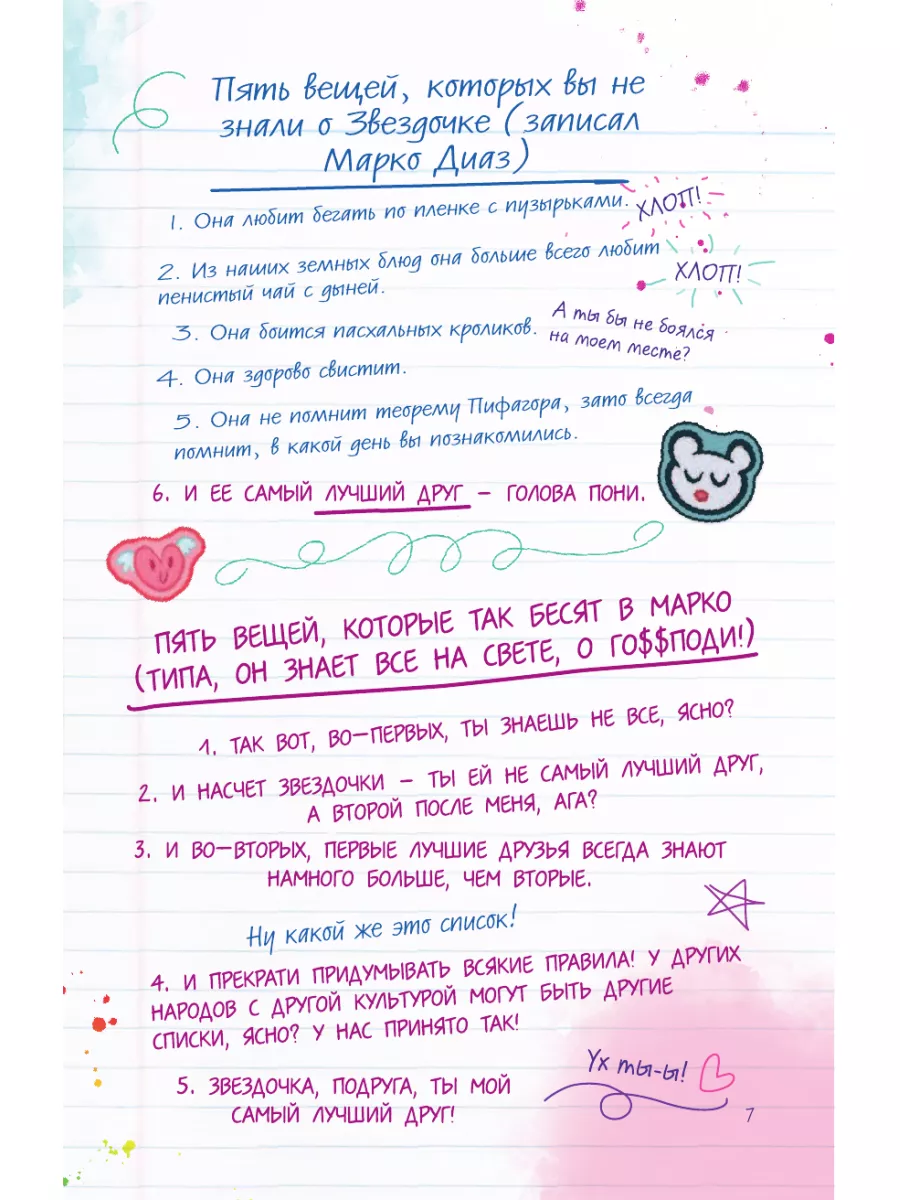 Пять вещей, которых вы не
знали о Звездочке (записал
Марко Диаз)
1. Она любит бегать по пленке с пузырьками.
ХЛОП!
2. Из наших земных блюд она больше всего любит
пенистый чай с дыней.
ХЛОП!
3. Она боится пасхальных кроликов.
А ты бы не боялся
на моем месте?
4. Она здорово свистит.
5. Она не помнит теорему Пифагора, зато всегда
помнит, в какой день вы познакомились.
6. И ЕЕ САМЫЙ ЛУЧШИЙ ДРУГ – ГОЛОВА ПОНИ.
ПЯТЬ ВЕЩЕЙ, КОТОРЫЕ ТАК БЕСЯТ В МАРКО
(ТИПА, ОН ЗНАЕТ ВСЕ НА СВЕТЕ, О ГО$$ПОДИ!)
1. ТАК ВОТ, ВО–ПЕРВЫХ, ТЫ ЗНАЕШЬ НЕ ВСЕ, ЯСНО?
2. И НАСЧЕТ ЗВЕЗДОЧКИ – ТЫ ЕЙ НЕ САМЫЙ ЛУЧШИЙ ДРУГ,
А ВТОРОЙ ПОСЛЕ МЕНЯ, АГА?
3. И ВО–ВТОРЫХ, ПЕРВЫЕ ЛУЧШИЕ ДРУЗЬЯ ВСЕГДА ЗНАЮТ
НАМНОГО БОЛЬШЕ, ЧЕМ ВТОРЫЕ.
Ну какой же это список!
4. И ПРЕКРАТИ ПРИДУМЫВАТЬ ВСЯКИЕ ПРАВИЛА! У ДРУГИХ
НАРОДОВ С ДРУГОЙ КУЛЬТУРОЙ МОГУТ БЫТЬ ДРУГИЕ
СПИСКИ, ЯСНО? У НАС ПРИНЯТО ТАК!
5. ЗВЕЗДОЧКА, ПОДРУГА, ТЫ МОЙ
САМЫЙ ЛУЧШИЙ ДРУГ!
Ух ты-ы!
7